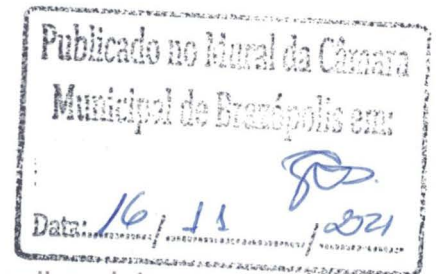 Publicado no Mural da Câmara
Municipal de Brazópolis em:
Data: 16 / 11 / 2021